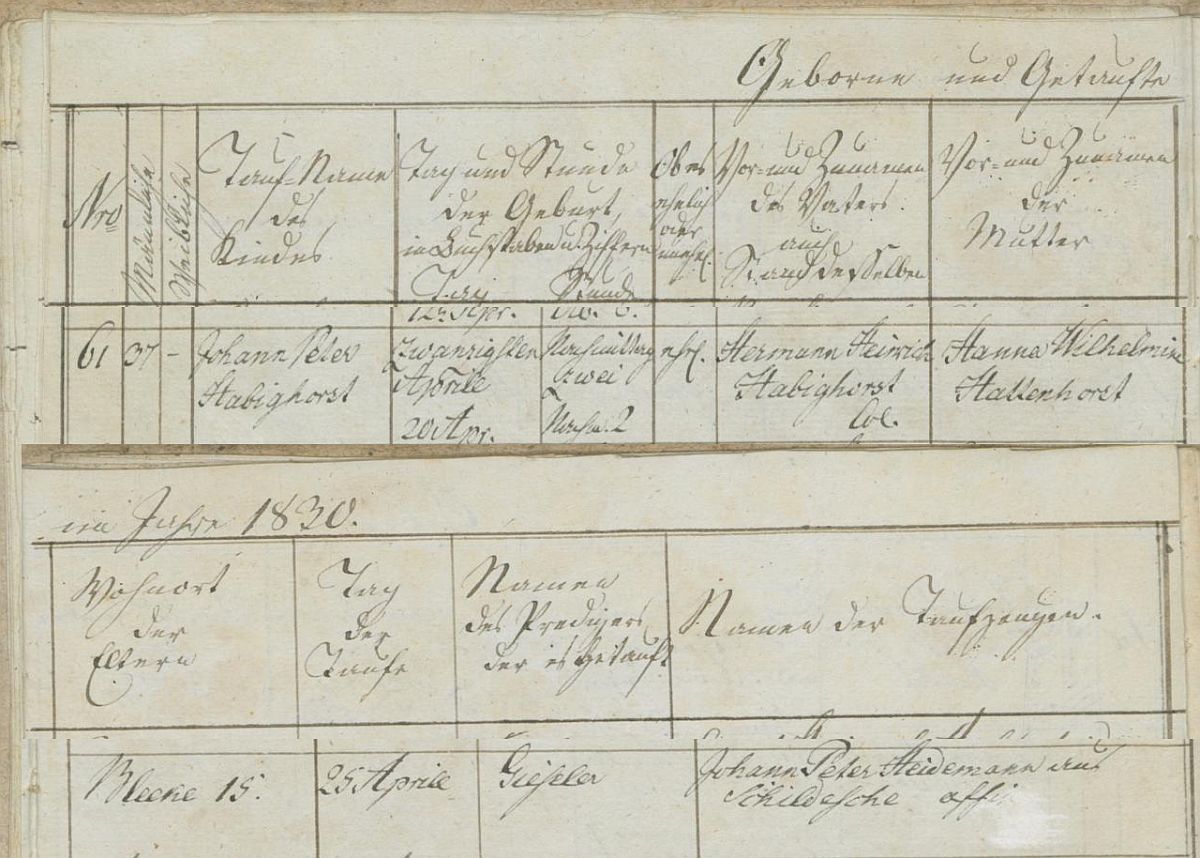 Geborne und Getaufte
Nro
Männliche
Weibliche
Tauf-Name
des
Kindes
Tag und Stunde
der Geburt,
in Buchstaben u. Ziffern
Tag Stunde
Ob es
ehelich
oder
unehel.
Vor- und Zunamen
des Vaters
auch
Stand desselben
Vor- und Zunamen
der
Mutter
12. Apr.
61 37 -
Johann Peter
Habighorst
Zwanzigsten
Aprile
20 Apr.
Nachmittag
zwei
Nachm. 2
ehel.
Hermann Heinrich
Habighorst
Col.
Hanna Wilhelmine
Hallenhorst
im Jahre 1830.
Wohnort
der
Eltern
Tag
der
Taufe
Namen
des Predigers,
der es Getauft
Namen der Taufzeugen.
Bleeke 15.
25 Aprile
Gieseler
Johann Peter Heidemann aus
Schildesche